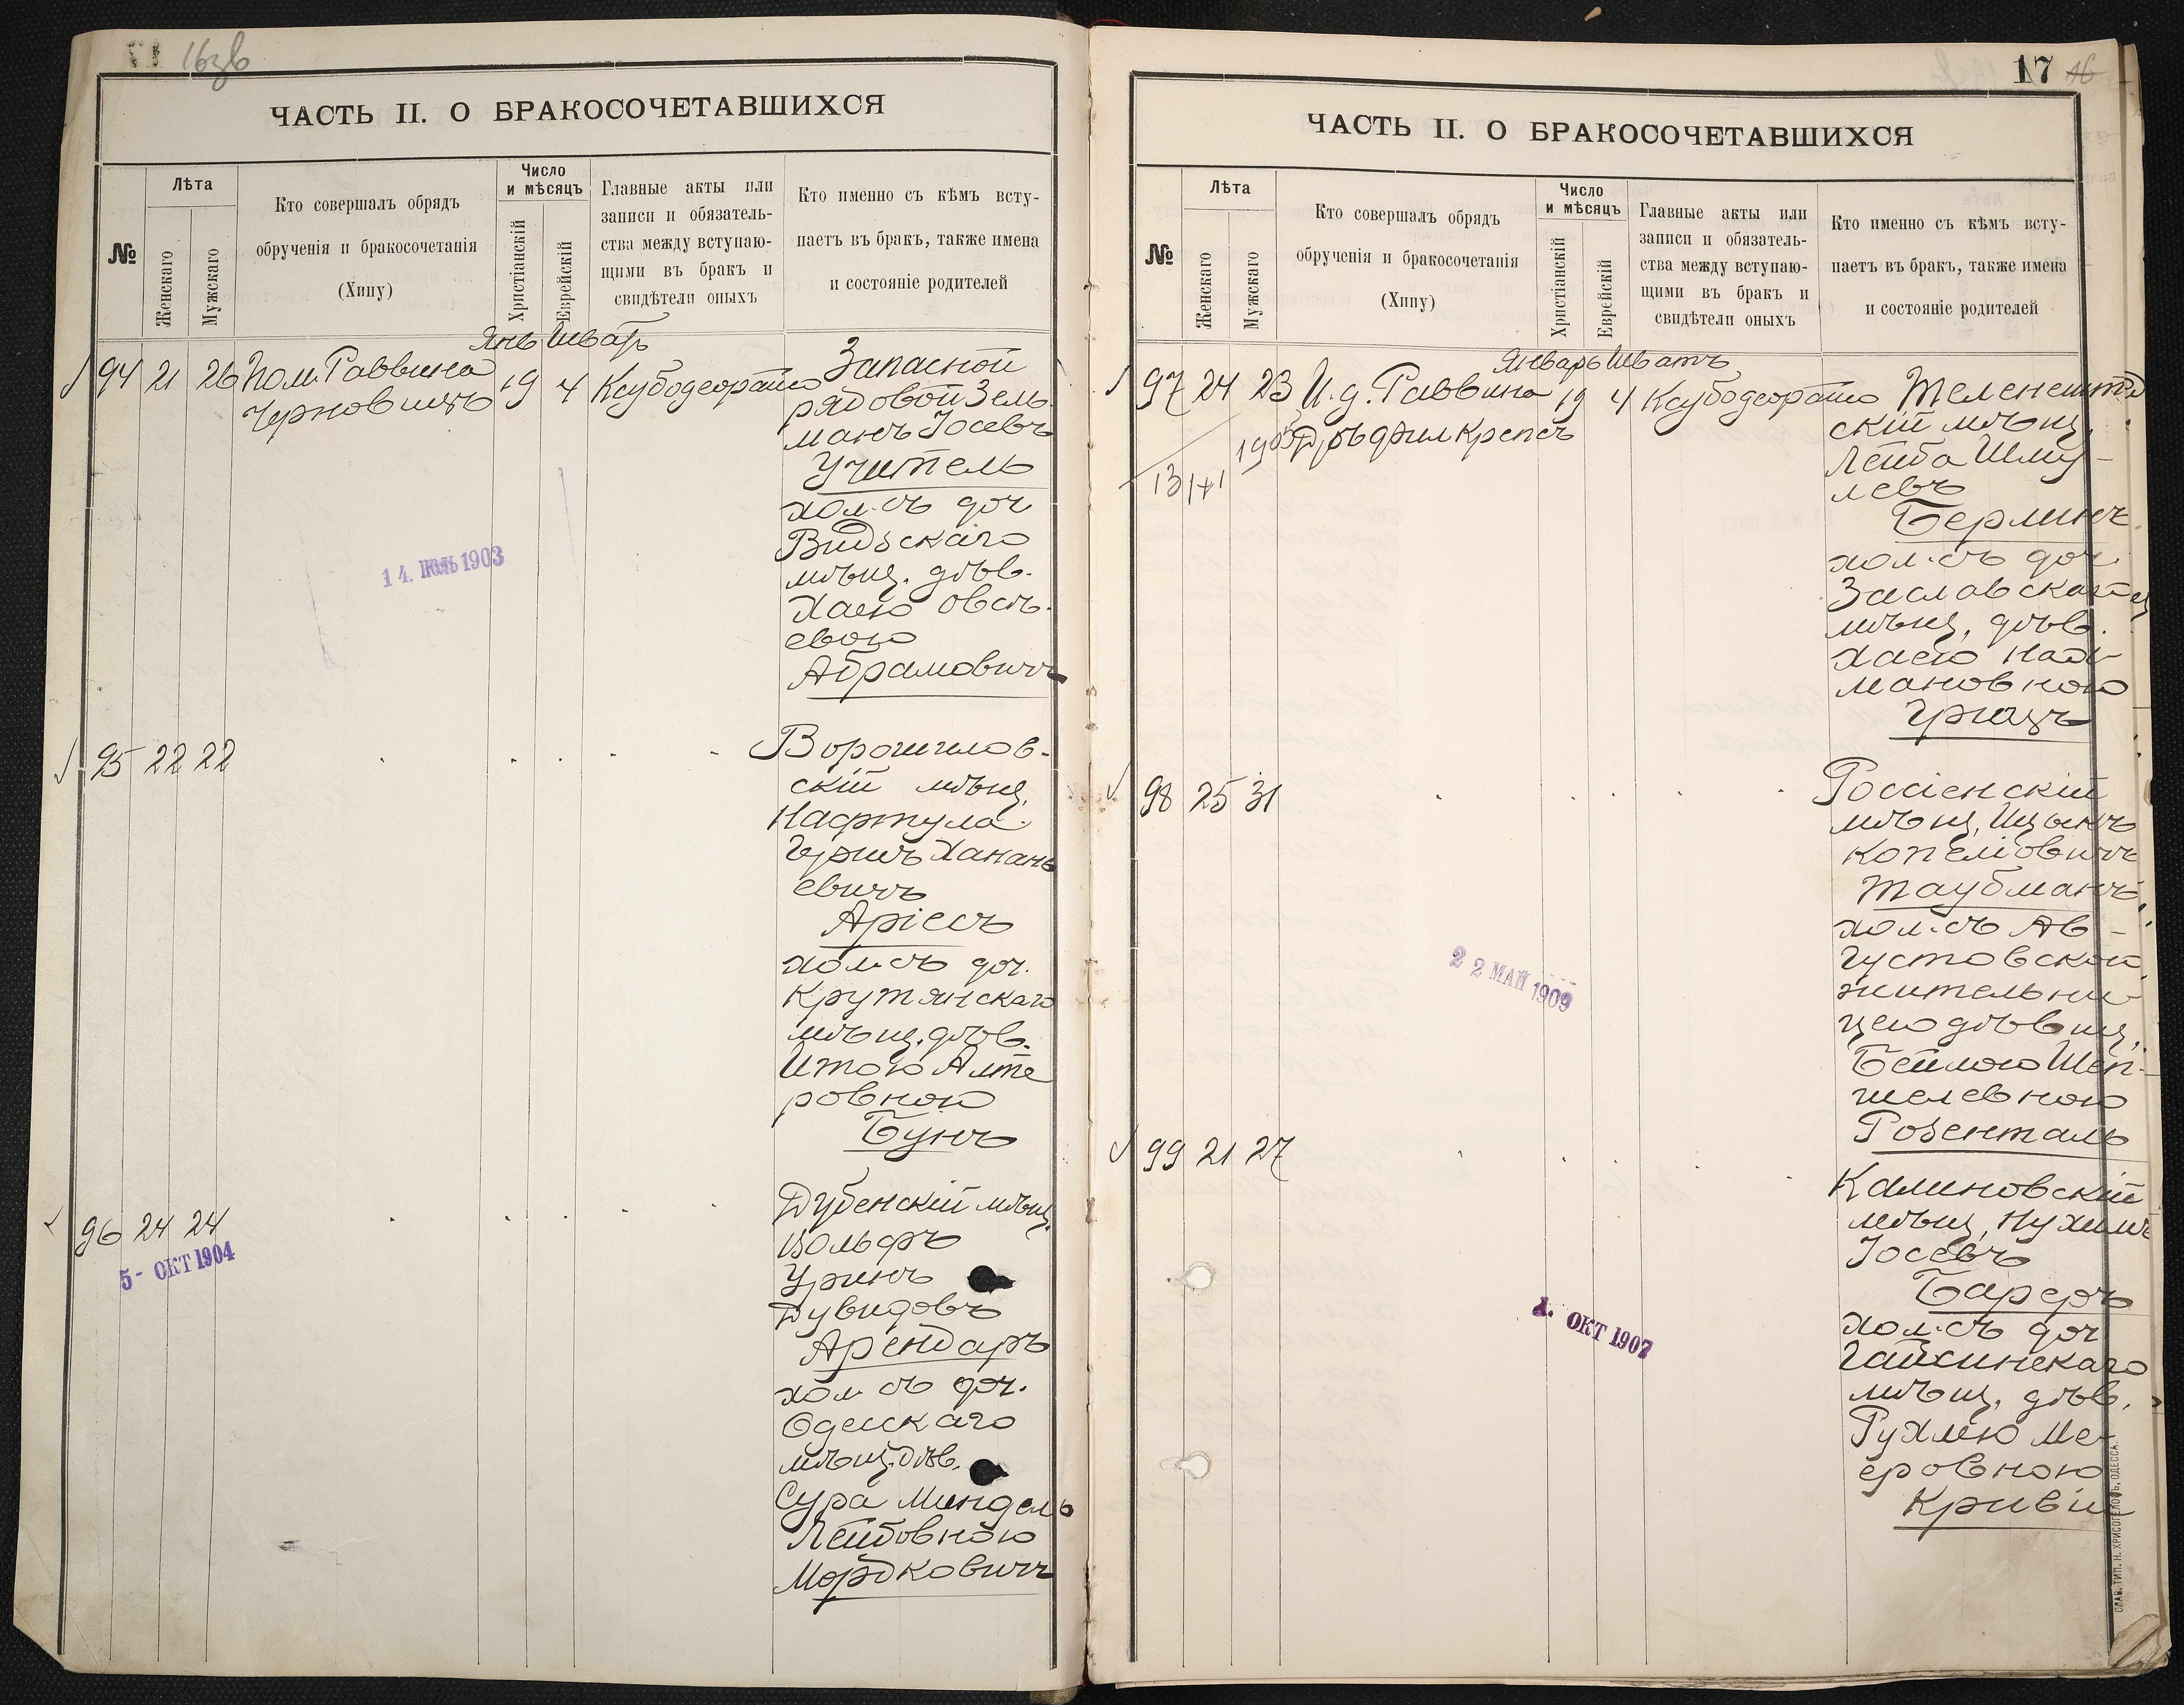 16зв
ЧАСТЬ II. О БРАКОСОЧЕТАВШИХСЯ
№
Лѣта
Женскаго
Мужскаго
Кто совершалъ обрядъ
обрученія и бракосочетанія
(Хипу)
Число
и мѣсяцъ
Христіанскій
Еврейскій
Главные акты или
записи и обязатель-
ства между вступаю-
щими въ бракъ и
свидѣтели оныхъ
Кто именно съ кѣмъ всту-
паетъ въ бракъ, также имена
и состояніе родителей
94 21 26 Пом. Раввина 19 4
Черновицъ
Запасной
рядовой Зель
манъ Іосевъ
Учитель
хол. съ доч
Видзскаго
мѣщ. дѣв.
Хаею Овсѣ-
евою
Абрамовичъ
14. ІЮЛЬ 1903
95 22 22
Ворошилов-
скій мѣщ.
Нафтула
Гершъ Ханань
евичъ
Аріесъ
хол. съ доч.
Крутянскаго
мѣщ. дѣв.
Итою Алте
ровною
Бунъ
96 24 24
5- ОКТ 1904
Дубенскій мѣщ.
Вольфъ
Уринъ
Дувидовъ
Арендаръ
хол. съ доч.
Одесскаго
мѣщ. дѣв.
Сура Миндель
Лейбовною
Мордковичъ
17 16
ЧАСТЬ II. О БРАКОСОЧЕТАВШИХСЯ
№
Лѣта
Женскаго
Мужскаго
Кто совершалъ обрядъ
обрученія и бракосочетанія
(Хипу)
Число
и мѣсяцъ
Христіанскій
Еврейскій
Главные акты или
записи и обязатель-
ства между вступаю-
щими въ бракъ и
свидѣтели оныхъ
Кто именно съ кѣмъ всту-
паетъ въ бракъ, также имена
и состояніе родителей
Январь Шватъ
97 24 23 И. д. Раввина 19 4
Д-ръ фил Крепсъ
Теленешт
скій мѣщ.
Лейба Шму-
левъ
Берлинъ
хол. съ доч.
Заславскаго
мѣщ. дѣв.
Хаею Нах-
мановною
Грицъ
98 25 31
Россіенскій
мѣщ. Ицыкъ
Копеліовичъ
Таубманъ
хол. съ Ав-
густовской
жительни-
цею дѣвиц.
Бейлою Шеп-
шелевною
Розенталь
22 МАЙ 1909
99 21 27
Калиновскій
мѣщ. Нухимъ
Іосевъ
Бардъ
хол. съ доч
Гайсинскаго
мѣщ. дѣв.
Рухлею Ме-
еровною
Кривій
1. ОКТ 1907
СЛАВ. ТИП. Н. ХРИСОГЕЛОСЪ, ОДЕССА.